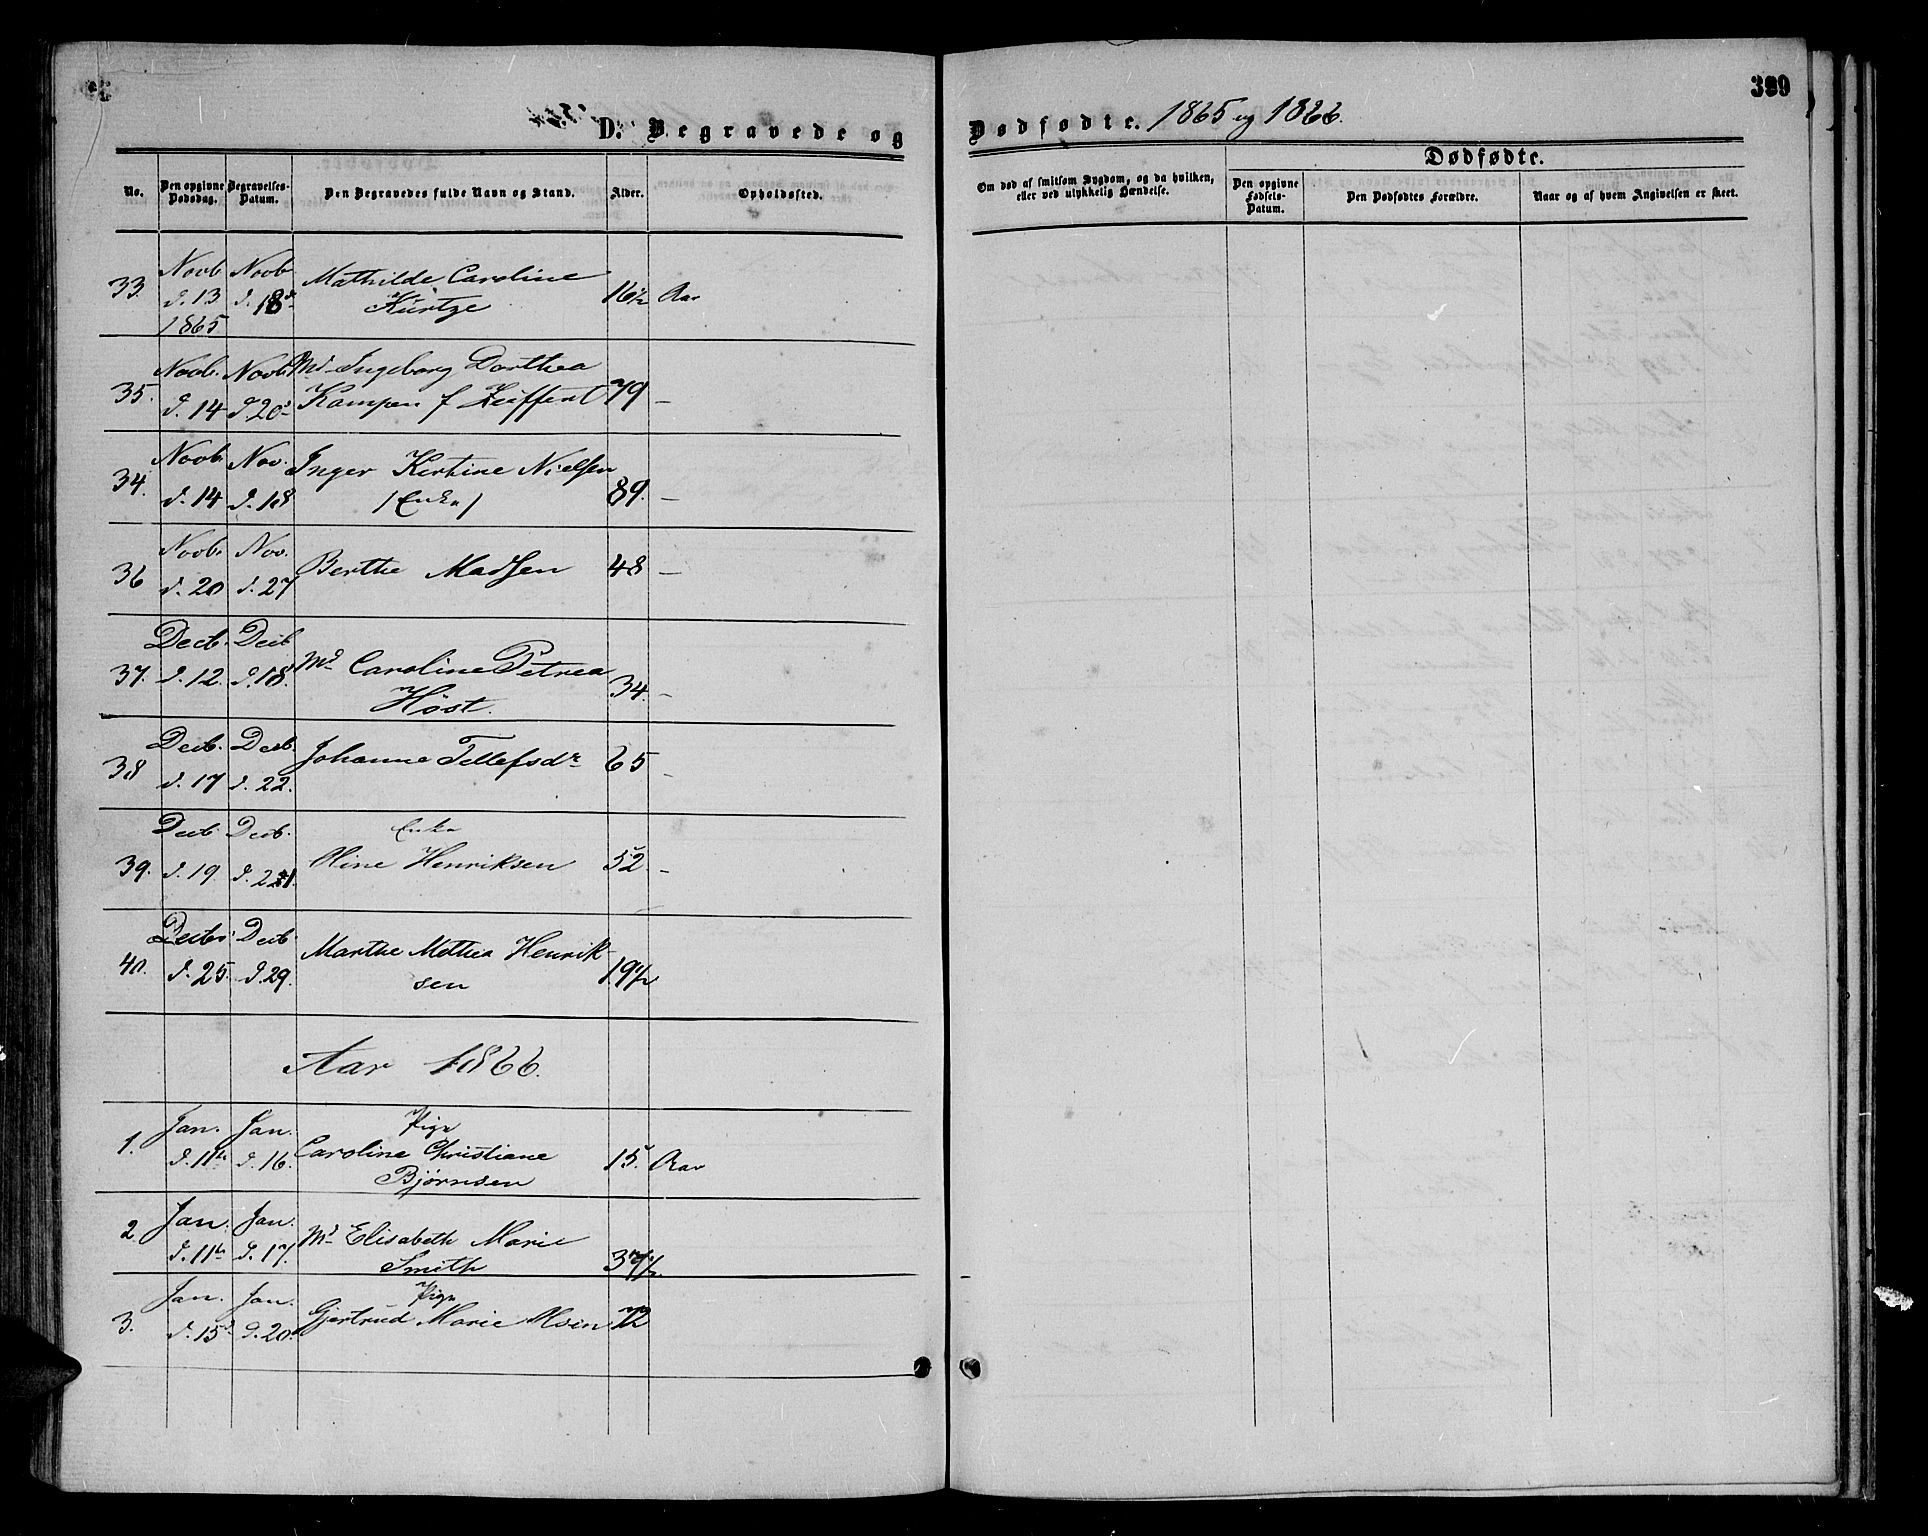 D. Begravede og
Dødfødte. 1865 og 1866.
399
No.
Den opgivne Dødsdag.
Begravelses-Datum.
Den Begravedes fulde Navn og Stand.
Alder.
Opholdssted.
Om død af smitsom Sygdom, og da hvilken,
eller ved ulykkelig Hændelse.
Dødfødte.
Den opgivne Fødsels-Datum.
Den Dødfødtes Forældre.
Naar og af hvem Angivelsen er skeet.
33. Novb. d. 13 1865 Novb d. 18d Mathilde Caroline
Kürtze 16½ Aar
35. Novb. d. 14 Novb d. 20d Md Ingeborg Dorthea
Kampen f. 79 —
34. Novb. d. 14 Nov. d. 18 Inger Kirstine Nielsen
/Enke/ 89. —
36 Novb. d. 20 Nov. d. 27 Berthe Madsen 48 —
37. Decb. d. 12. Decb d. 18. Md Caroline Petrea
Höst. 34. —
38 Decb. d. 17 Decb. d. 22. Johanne Tellefsdr 65 —
39. Decb. d. 19. Decb. d. Enke
Oline Henriksen 52. —
40. Decbr. d. 25. Decb. d. 29. Marthe Mathea Henrik-
sen 19½
Aar 1866.
1. Jan. d. 11te Jan. d. 16. Pige
Caroline Christiane
Bjørnsen 15. Aar
2. Jan. d. 11te Jan. d. 17. Md Elisabeth Marie
Smith 37½.
3. Jan. d. 15d Jan. d. 20. Pige
Gjertrud Marie 72